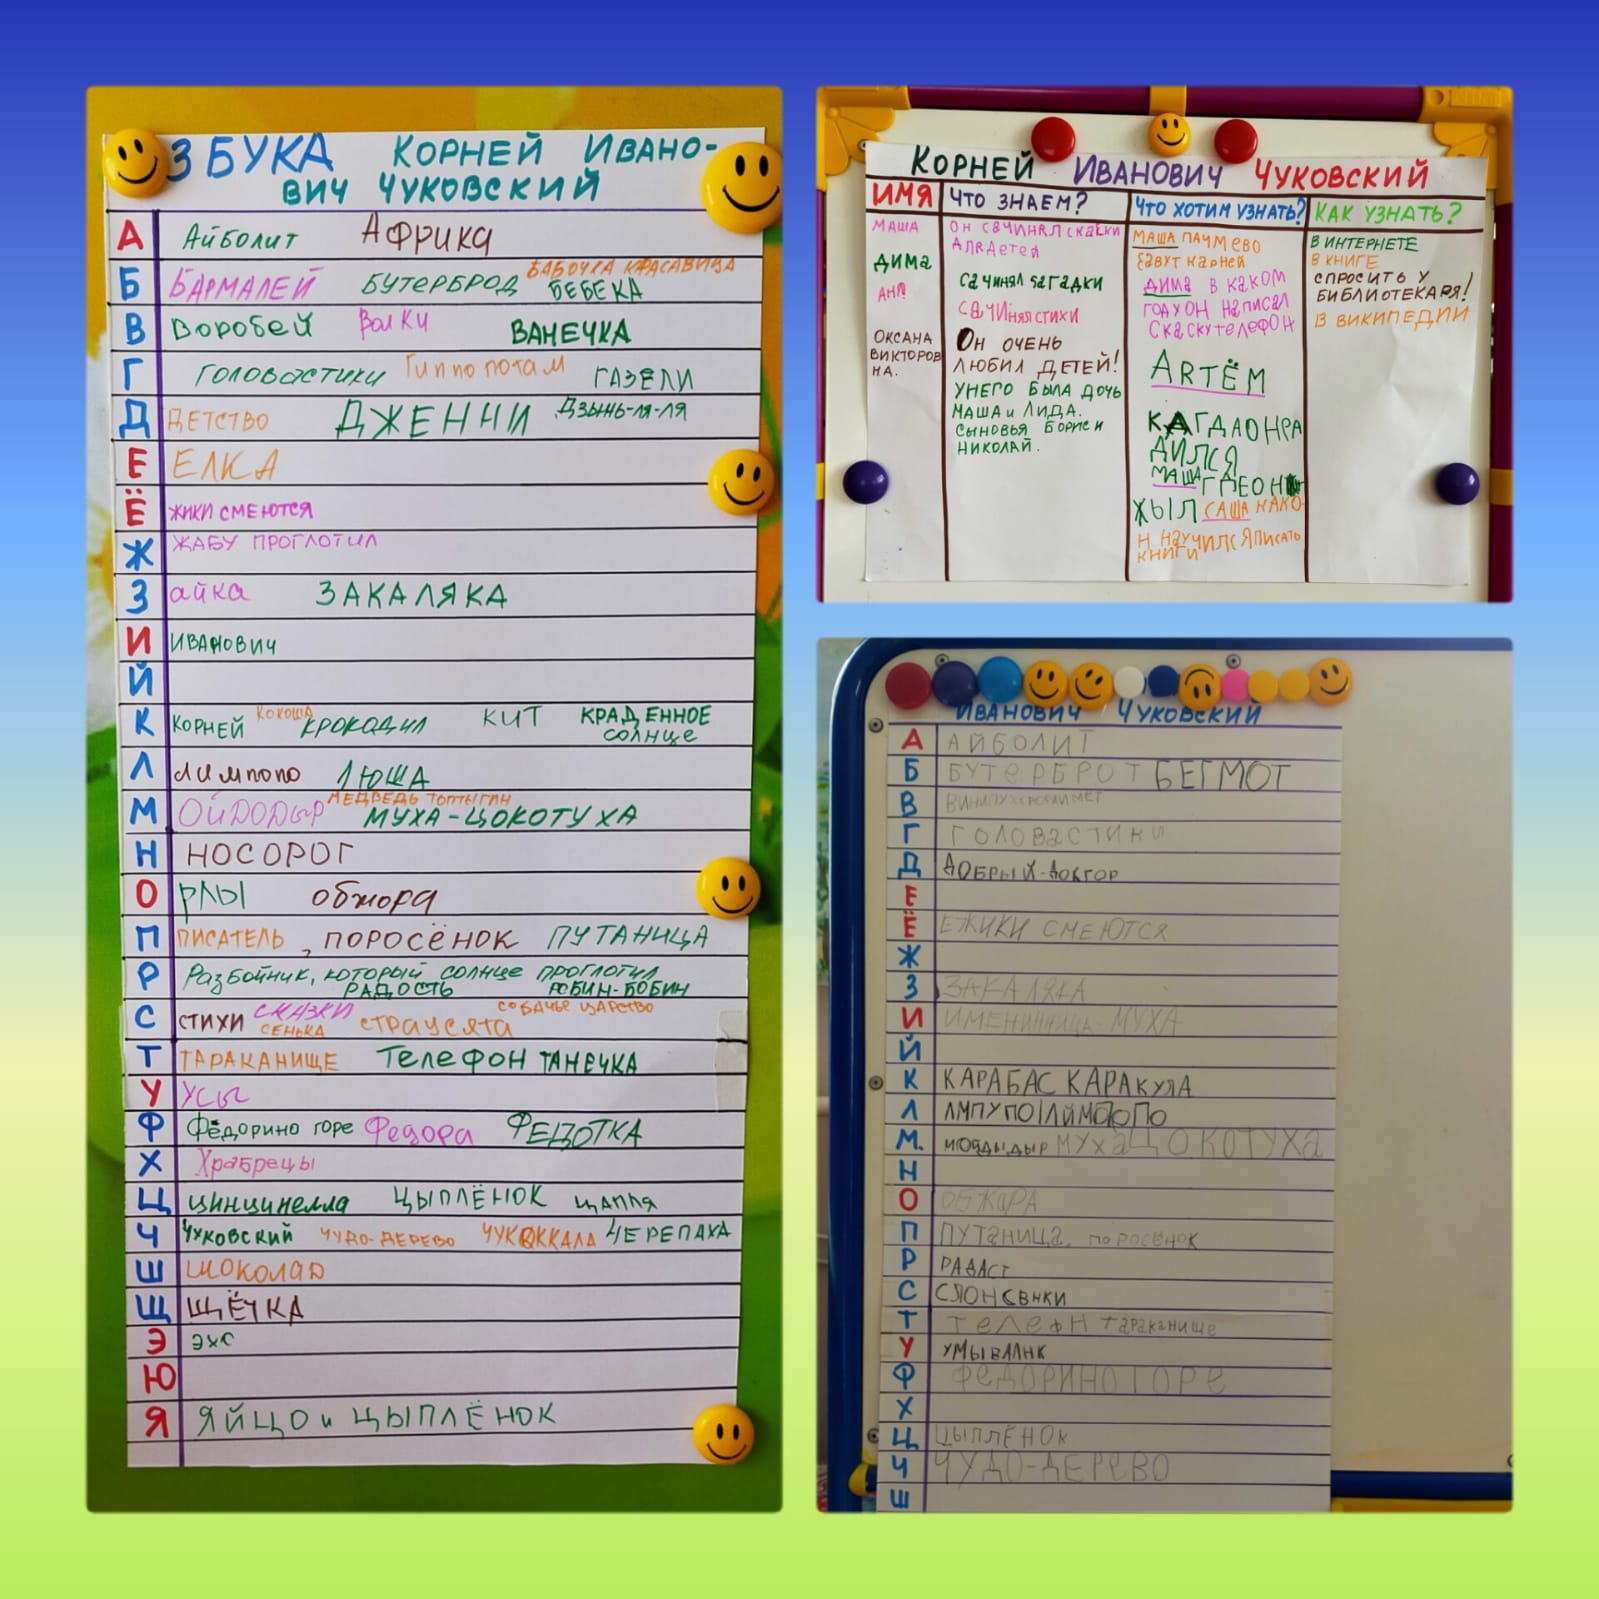 ЗБУКА КОРНЕЙ ИВАНО-
ВИЧ ЧУКОВСКИЙ
А Айболит АФРИКА
Б БАРМАЛЕЙ БУТЕРБРОД БАБОЧКА КРАСАВИЦА БЕБЕКА
В Воробей Волки ВАНЕЧКА
Г Головастики Гиппопотам ГАЗЕЛИ
Д ДЕТСТВО ДЖЕННИ Дзынь-ля-ля
Е ЕЛКА
Ё ЖИКИ СМЕЮТСЯ
Ж ЖАБУ ПРОГЛОТИЛ
З айка ЗАКАЛЯКА
И ИВАНОВИЧ
Й
К КОРНЕЙ КОКОША КРОКОДИЛ КИТ КРАДЕННОЕ
СОЛНЦЕ
Л Лимпопо ЛЮША
М ОЙДОДЫР МЕДВЕДЬ ТОПТЫГИН МУХА-ЦОКОТУХА
Н НОСОРОГ
О РЛЫ обжора
П ПИСАТЕЛЬ, ПОРОСЁНОК ПУТАНИЦА
Р Разбойник, который солнце проглотил
РАДОСТЬ РОБИН-БОБИН
С СТИХИ СКАЗКИ СЕНЬКА СТРАУСЯТА СОБАЧЬЕ ЦАРСТВО
Т ТАРАКАНИЩЕ ТЕЛЕФОН ТАНЕЧКА
У УСЫ
Ф Фёдорино горе Федора ФЕДОТКА
Х Храбрецы
Ц Цинцинелла ЦЫПЛЁНОК ЦАПЛЯ
Ч ЧУКОВСКИЙ ЧУДО-ДЕРЕВО ЧУКОККАЛА ЧЕРЕПАХА
Ш ШОКОЛАД
Щ ЩЁТКА
Э ЭХО
Ю
Я ЯЙЦО и ЦЫПЛЁНОК
КОРНЕЙ ИВАНОВИЧ ЧУКОВСКИЙ
ИМЯ ЧТО ЗНАЕМ? ЧТО ХОТИМ УЗНАТЬ? КАК УЗНАТЬ?
МАША
ДИМА
АНЯ
ОКСАНА
ВИКТОРОВ
НА.
ОН САЧИНЯЛ СКАСКИ
ДЛЯ ДЕТЕЙ
САЧИНЯЛ ЗАГАДКИ
САЧИНЯЛ СТИХИ
ОН ОЧЕНЬ
ЛЮБИЛ ДЕТЕЙ!
У НЕГО БЫЛА ДОЧЬ
МАША И ЛИДА.
СЫНОВЬЯ БОРИС И
НИКОЛАЙ.
МАША ПАЧМЕВО
ЗАВУТ КАРНЕЙ
ДИМА В КАКОМ
ГОДУ ОН НАПИСАЛ
СКАСКУ ТЕЛЕФОН
АRТЁМ
КАГДА ОН РА
ДИЛСЯ
МАША ГДЕ ОН
ЖЫЛ САША КАК О
Н НАУЧИЛСЯ ПИСАТЬ
КНИГИ
В ИНТЕРНЕТЕ
В КНИГЕ
СПРОСИТЬ У
БИБЛИОТЕКАРЯ!
В ВИКИПЕДИИ
ИВАНОВИЧ ЧУКОВСКИЙ
А АЙБОЛИТ
Б БУТЕРБРОТ БЕГМОТ
В
Г ГОЛОВАСТИКИ
Д ДОБРЫЙ-ДОКТОР
Е
Ё ЕЖИКИ СМЕЮТСЯ
Ж
З ЗАКАЛЯКА
И ИМЕНИННИЦА-МУХА
Й
К КАРАБАС КАРАКУЛА
Л
М. МУХАЦОКОТУХА
Н
О ОБЖОРА
П ПУТАНИЦА. ПОРОСЁНОК
Р РАДАСТ
С СЛОН СВНКИ
Т ТЕЛЕФН ТАРАКАНИЩЕ
У УМЫВАЛНК
Ф ФЕДОРИНО ГОРЕ
Х
Ц ЦЫПЛЁНОК
Ч ЧУДО-ДЕРЕВО
Ш